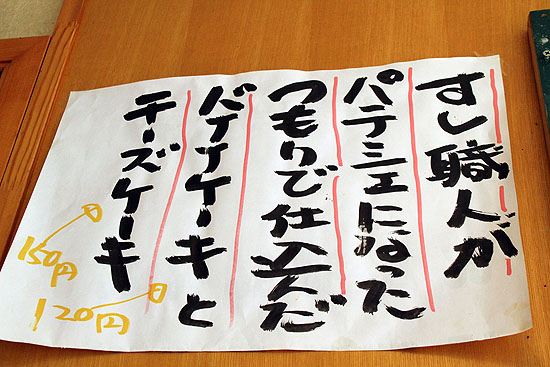 すし職人が
パテシエになった
つもりで仕込んだ
バナナケーキと
チーズケーキ
120円
150円